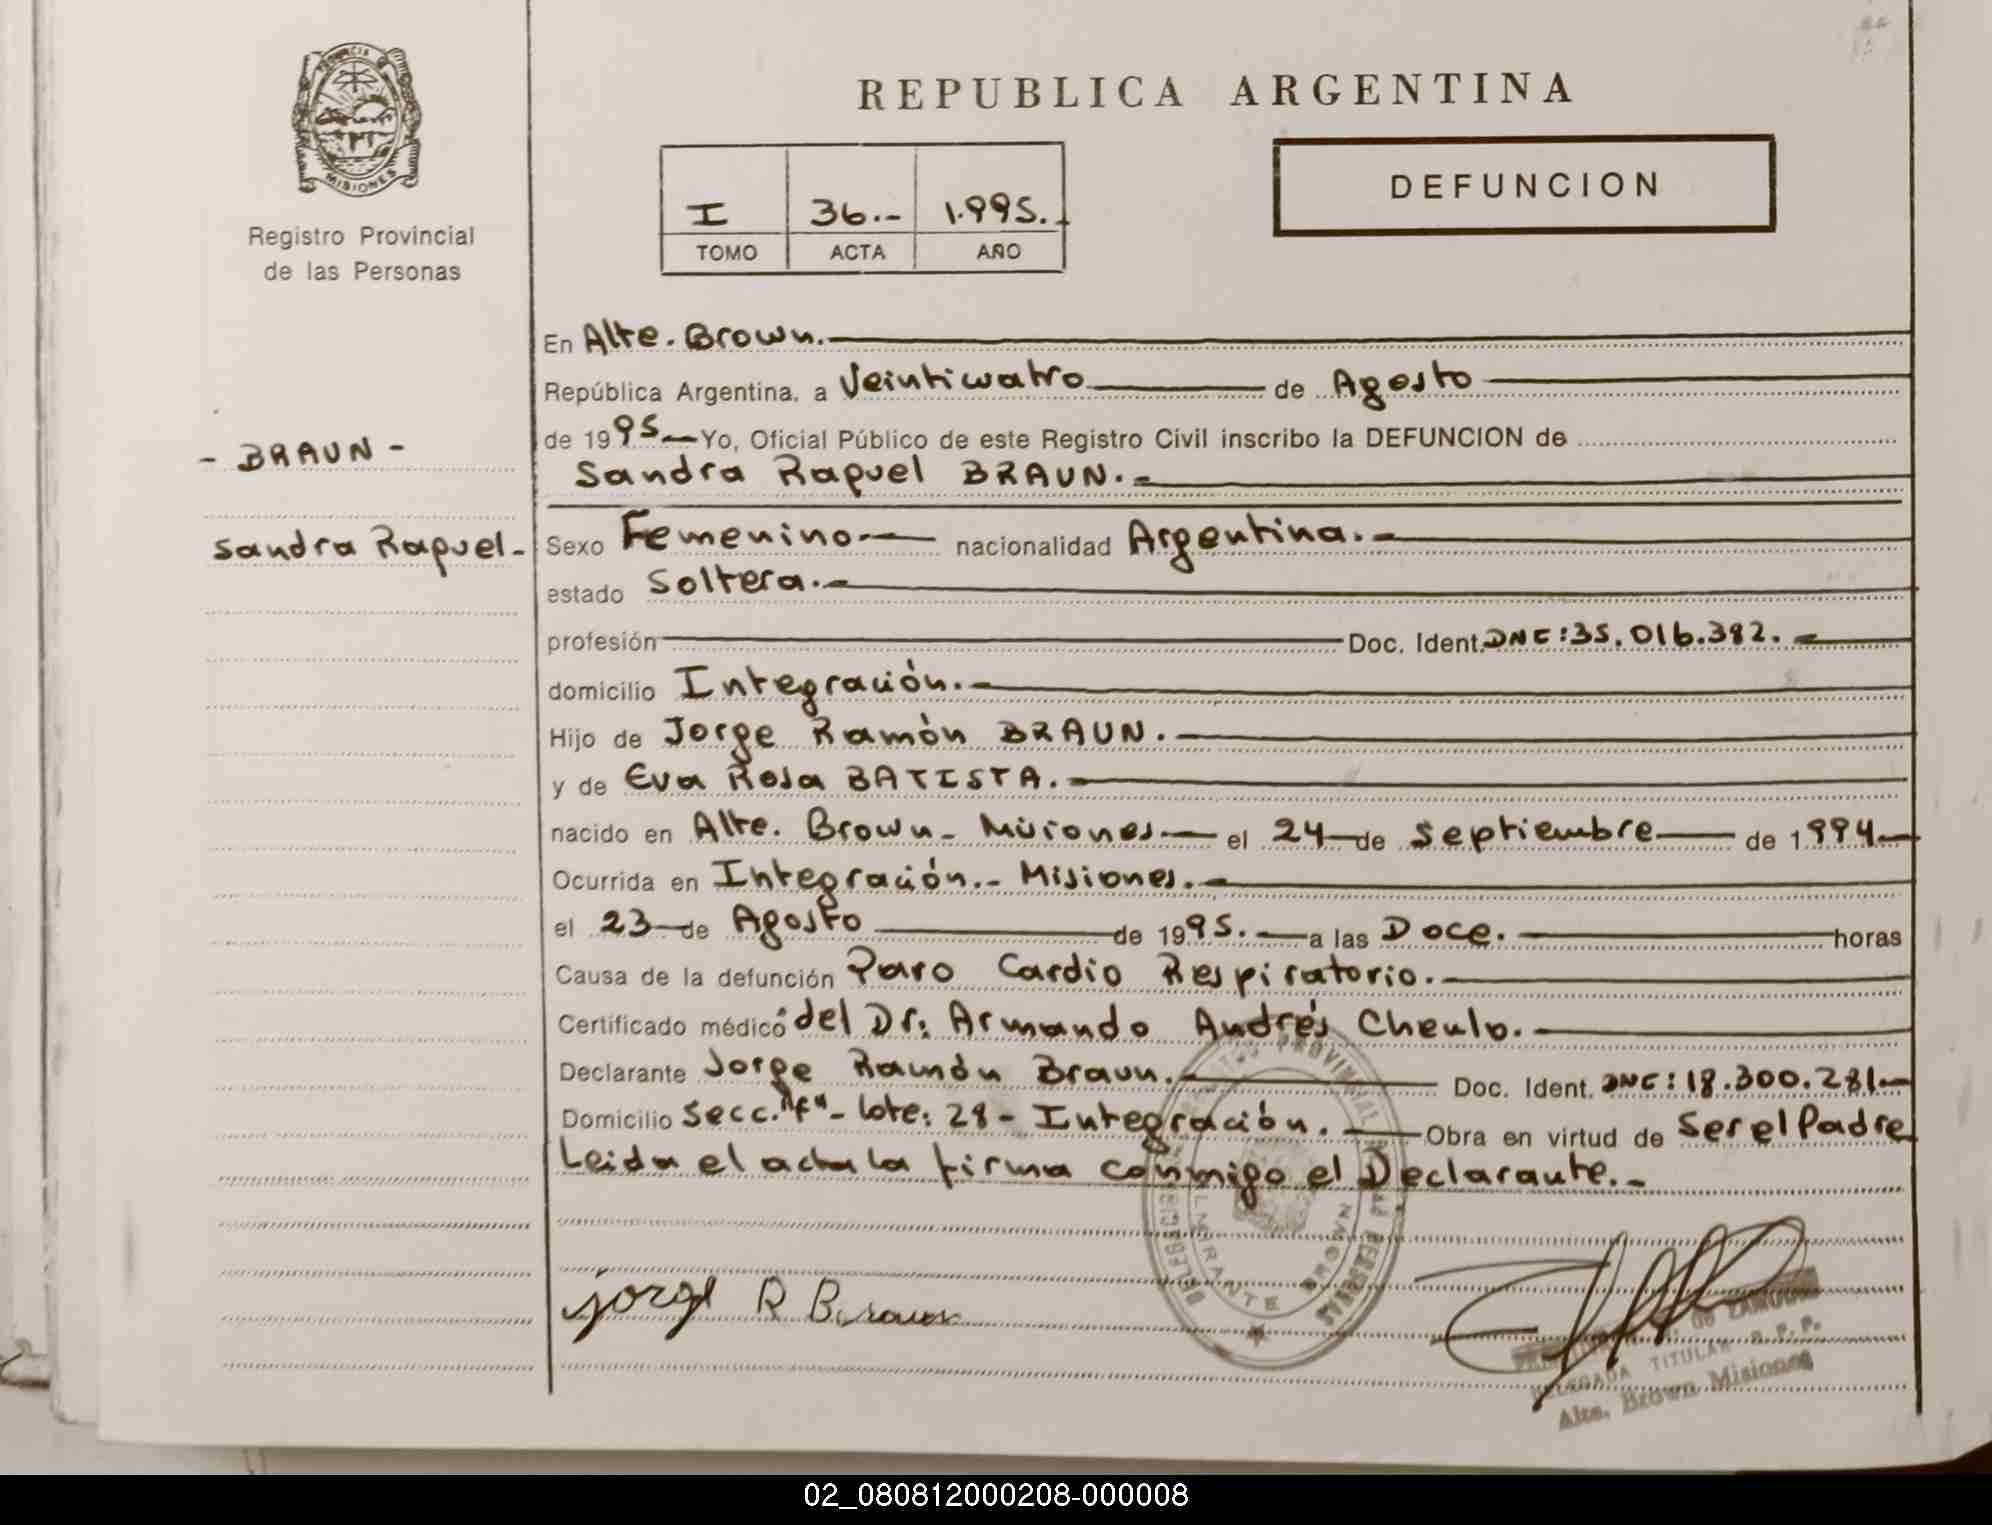 PROVINCIA
MISIONES
Registro Provincial
de las Personas
- BRAUN -
Sandra Raquel-
REPUBLICA ARGENTINA
I 36.- 1.995.-
TOMO ACTA AÑO
DEFUNCION
En Alte. Brown.
República Argentina, a Veinticuatro de Agosto
de 1995 Yo, Oficial Público de este Registro Civil inscribo la DEFUNCION de
Sandra Raquel BRAUN.-
Sexo Femenino.- nacionalidad Argentina.-
estado Soltera.-
profesión Doc. Ident. DNE: 35.016.382.-
domicilio Integración.-
Hijo de Jorge Ramón BRAUN.-
y de Eva Rosa BATISTA.-
nacido en Alte. Brown- Misiones el 24 de Septiembre de 1994
Ocurrida en Integración.- Misiones.-
el 23 de Agosto de 1995. a las Doce. horas
Causa de la defunción Paro Cardio Respiratorio.-
Certificado médico del Dr: Armando Andrés Chenlo.-
Declarante Jorge Ramón Braun.- Doc. Ident. DNE: 18.300.281.-
Domicilio Secc. "f"- lote: 28- Integración. Obra en virtud de Ser el Padre
Leida el acta la firma conmigo el Declarante.-
jorge R Beraun
DELEGADA TITULAR R. P. P.
Alte. Brown Misiones
02_080812000208-000008